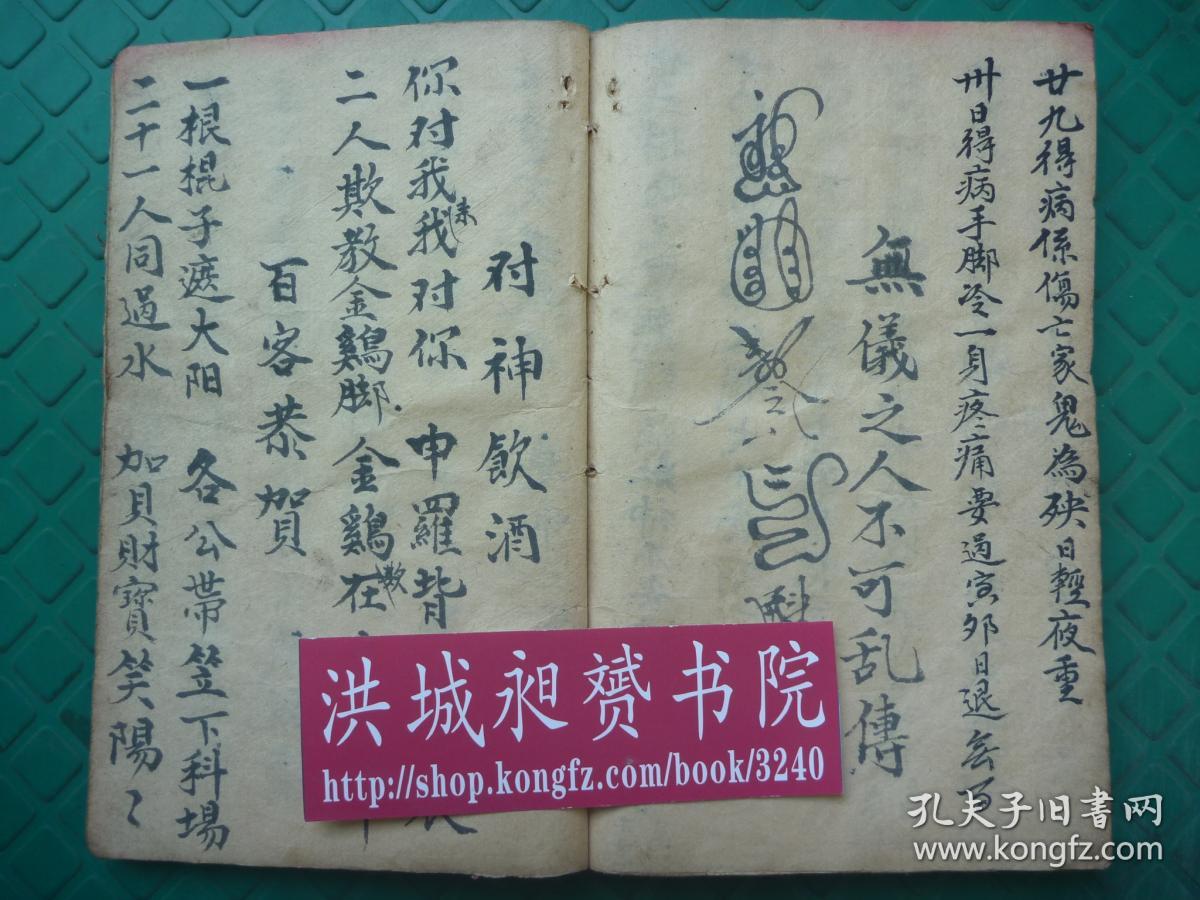 廿九得病係傷亡家鬼為殃日輕夜重
卅日得病手脚冷一身疼痛要過寅夘日退無
無儀之人不可乱傳
对神飲酒
你对我我对你 申羅背
未
二人欺教金鷄脚金鷄在
教
百客恭賀
一根棍子遮大阳 各公带笠下科場
二十一人同過水 加貝財寶笑陽〻
洪城昶赟书院
http://shop.kongfz.com/book/3240
孔夫子旧书网
www.kongfz.com